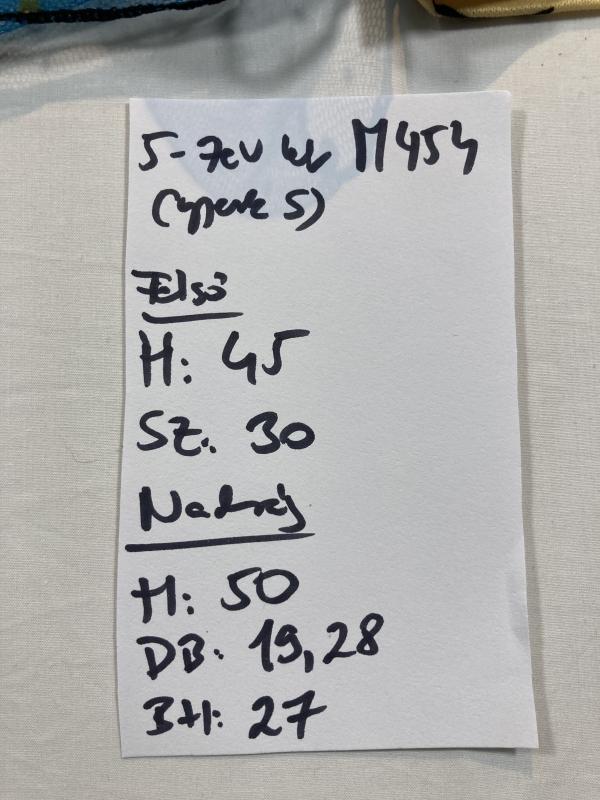 5-7év kb M454
(gyerek S)
Felső
H: 45
SZ: 30
Nadrág
H: 50
DB: 19,28
BH: 27